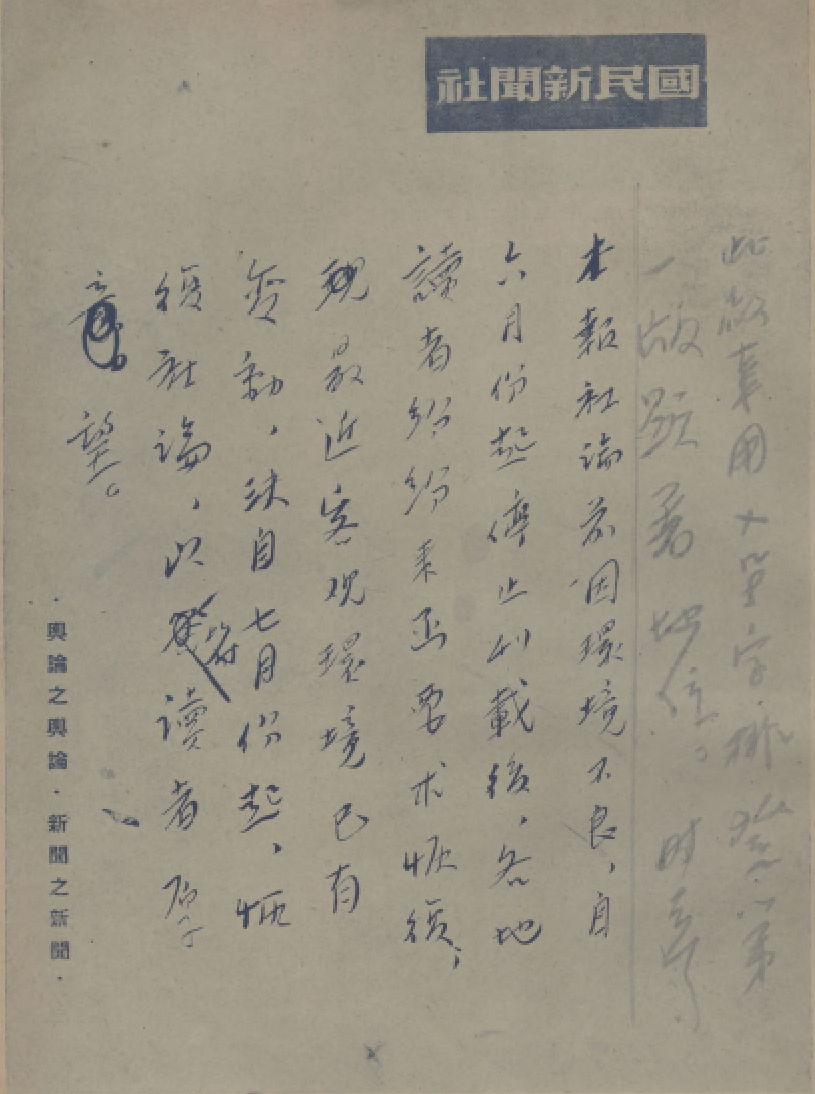 國民新聞社
此啟事用大单字排登以第
一版顯著地位。
本報社論前因環境不良，自
六月份起停止刊載後，各地
讀者紛紛来函要求恢復，
現最近客观環境已有
变動，決自七月份起，恢
復社論，以符讀者厚
望。
·輿論之輿論·新聞之新聞·